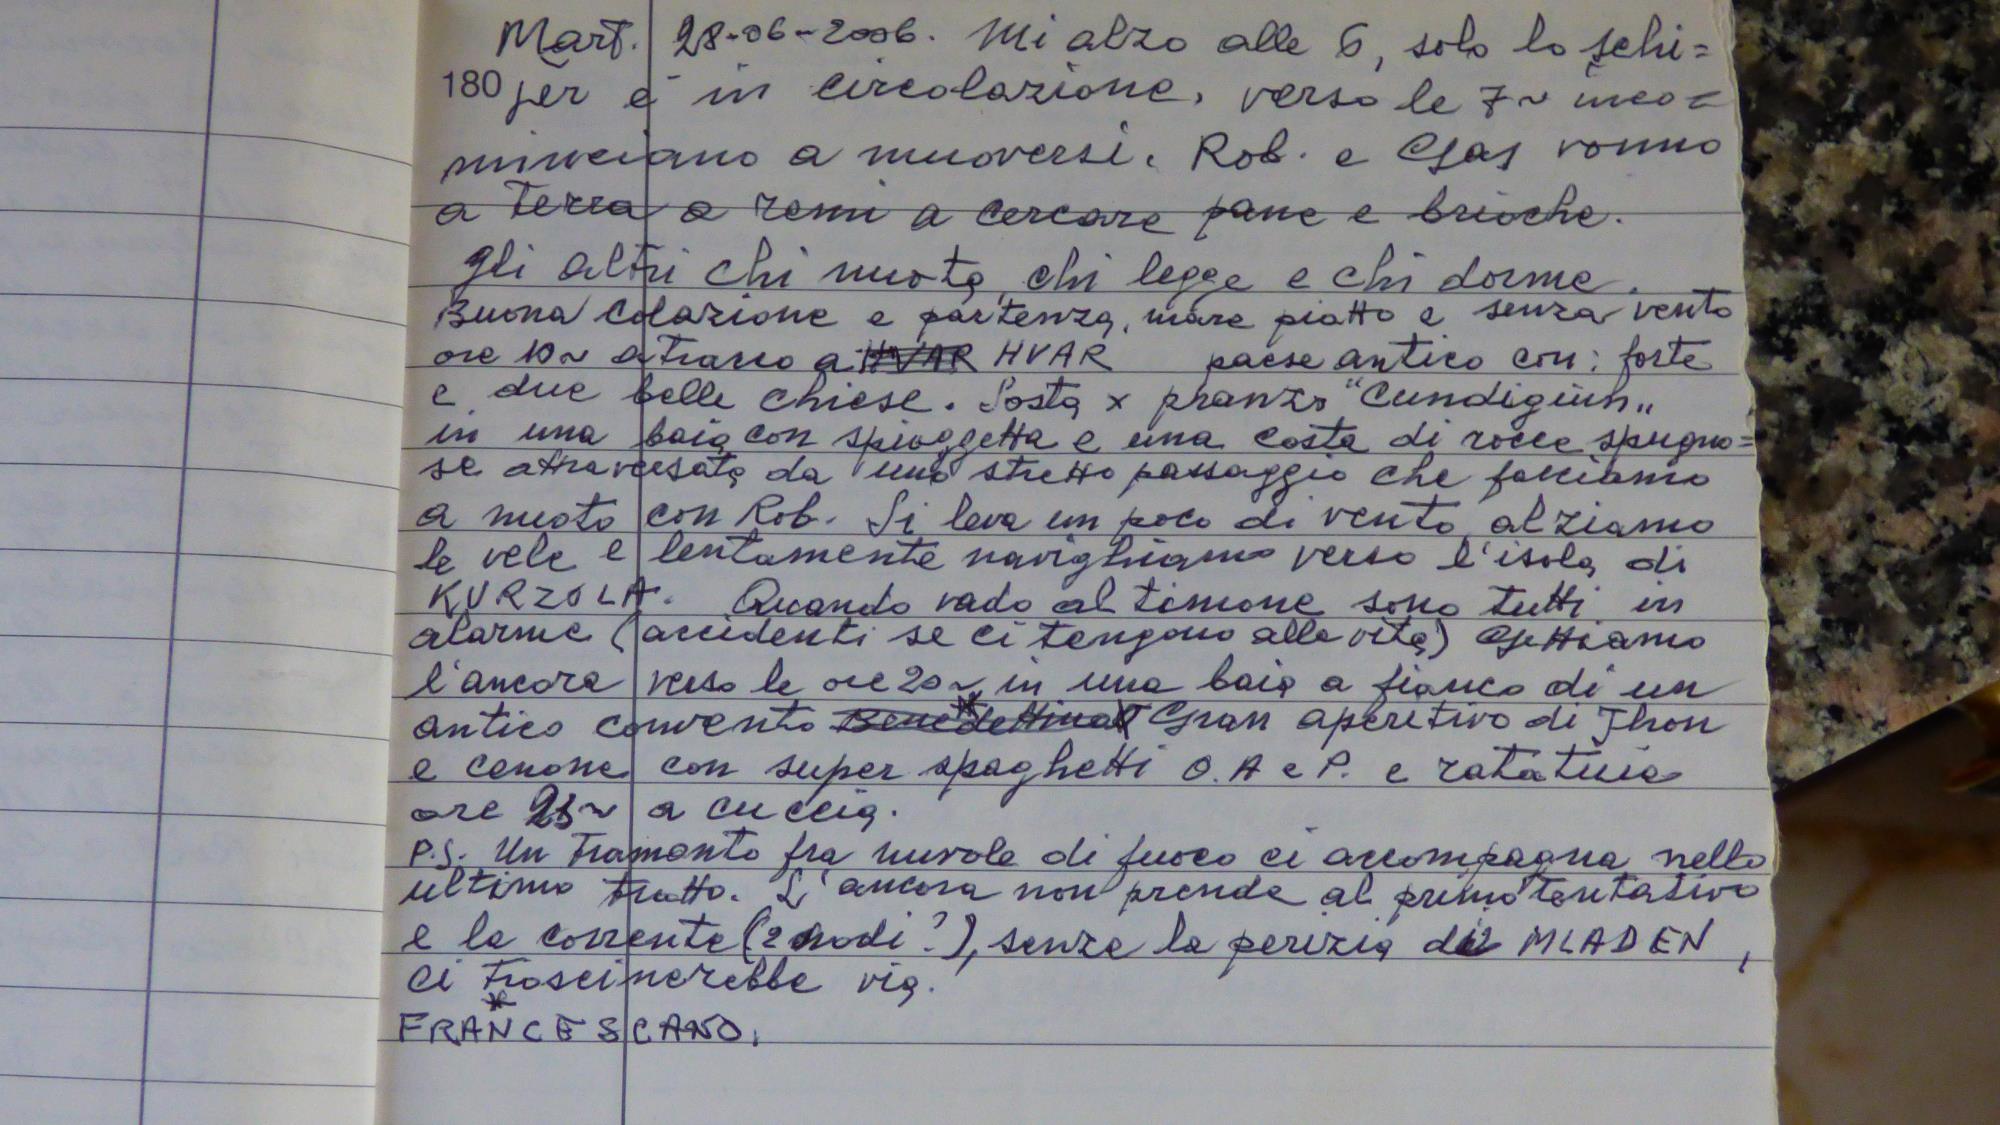 Mart. 28-06-2006. Mi alzo alle 6, solo lo schi=
180 per è in circolazione, verso le 7~ inco=
minciano a muoversi. Rob. e Gas vanno
a terra a remi a cercare pane e brioche.
gli altri chi nuota, chi legge e chi dorme.
Buona colazione e partenza, mare piatto e senza vento
ore 10~ attracco a HVAR HVAR paese antico con: forte
e due belle chiese. Sosta x pranzo "Cundigiun"
in una baia con spiaggetta e una costa di rocce spugno=
se attraversata da uno stretto passaggio che facciamo
a nuoto con Rob. Si leva un poco di vento, alziamo
le vele e lentamente navighiamo verso l'isola di
KURZOLA. Quando vado al timone sono tutti in
alarme (accidenti se ci tengono alla vita) Gettiamo
l'ancora verso le ore 20~ in una baia a fianco di un
antico convento Benedettino* Gran aperitivo di Jhon
e cenone con super spaghetti O. A e P. e ratatuia
ore 23~ a cuccia.
P.S. Un tramonto fra nuvole di fuoco ci accompagna nello
ultimo tratto. L'ancora non prende al primo tentativo
e la corrente (2 nodi?), senza la perizia di MLADEN,
ci trascinerebbe via.
*
FRANCESCANO.